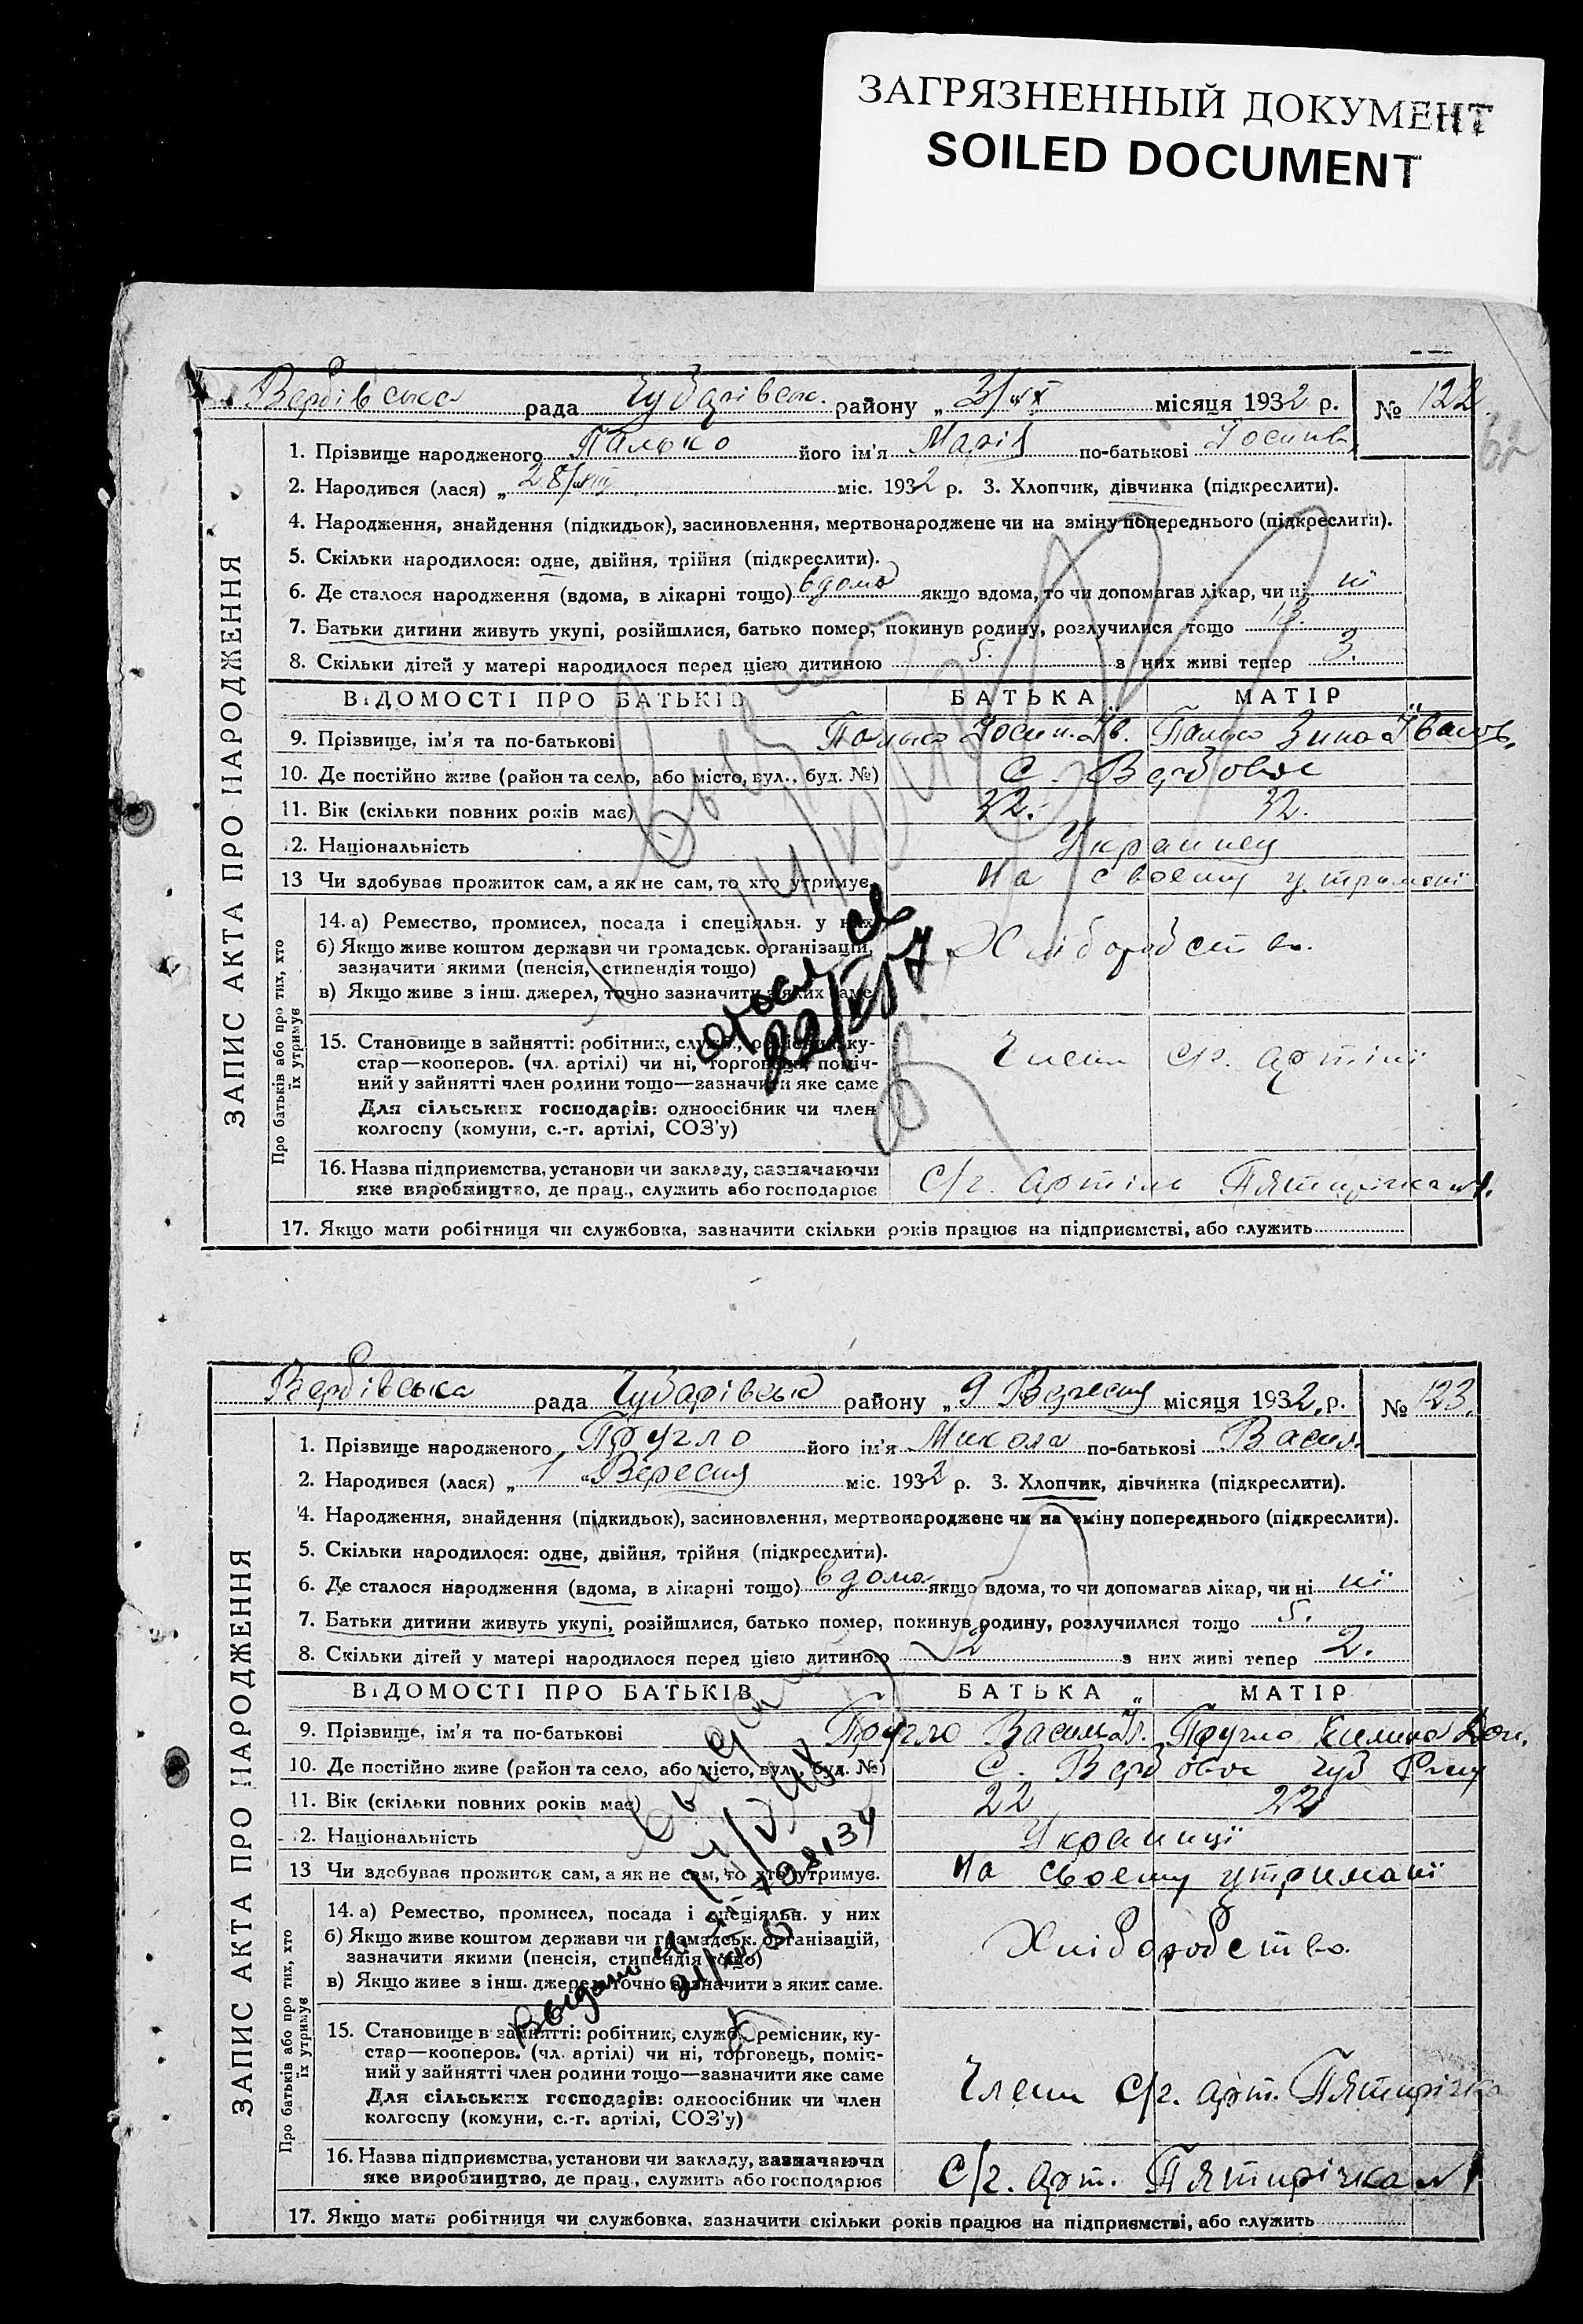 ЗАГРЯЗНЕННЫЙ ДОКУМЕНТ
SOILED DOCUMENT
Вербівська рада Чубарівськ. району „ 3/ІХ місяця 1932 р. № 122.
62
ЗАПИС АКТА ПРО НАРОДЖЕННЯ
1. Прізвище народженого Палько його ім'я Марія по-батькові Йосипів
2. Народився (лася) „ 28/VIII міс. 1932 р. 3. Хлопчик, дівчинка (підкреслити).
4. Народження, знайдення (підкидьок), засиновлення, мертвонароджене чи на зміну попереднього (підкреслити).
5. Скільки народилося: одне, двійня, трійня (підкреслити).
6. Де сталося народження (вдома, в лікарні тощо) вдома якщо вдома, то чи допомагав лікар, чи ні ні
7. Батьки дитини живуть укупі, розійшлися, батько помер, покинув родину, розлучилися тощо 13.
8. Скільки дітей у матері народилося перед цією дитиною 5. з них живі тепер 3.
ВІДОМОСТІ ПРО БАТЬКІВ БАТЬКА „ МАТІР „
9. Прізвище, ім'я та по-батькові Палько Йосип. Ів. Палько Зина Іванов.
10. Де постійно живе (район та село, або місто, вул., буд. №) С. Вербове
11. Вік (скільки повних років має) 32. 32.
12. Національність Украинец
13 Чи здобував прожиток сам, а як не сам, то хто утримує. На своему утримані
Про батьків або про тих, хто
їх утримує
14. а) Ремество, промисел, посада і спеціяльн. у них
б) Якщо живе коштом держави чи громадськ. організацій,
зазначити якими (пенсія, стипендія тощо)
в) Якщо живе з інш. джерел, точно зазначити з яких саме.
Хліборобство.
15. Становище в зайнятті: робітник, служб., ремісник, ку-
стар—кооперов. (чл. артілі) чи ні, торговець, поміч-
ний у зайнятті член родини тощо—зазначити яке саме
Для сільських господарів: одноосібник чи член
колгоспу (комуни, с.-г. артілі, СОЗ'у)
Член с/г. артілі
16. Назва підприємства, установи чи закладу, зазначаючи
яке виробництво, де прац., служить або господарює
С/г. артіль Пятирічка №1.
17. Якщо мати робітниця чи службовка, зазначити скільки років працює на підприємстві, або служить
Вербівська рада Чубарівськ району „ 9 Вересня місяця 1932, р. № 123.
ЗАПИС АКТА ПРО НАРОДЖЕННЯ
1. Прізвище народженого Пругло його ім'я Микола по-батькові Васил.
2. Народився (лася) „ 1 „ Вересня міс. 1932 р. 3. Хлопчик, дівчинка (підкреслити).
4. Народження, знайдення (підкидьок), засиновлення, мертвонароджене чи на зміну попереднього (підкреслити).
5. Скільки народилося: одне, двійня, трійня (підкреслити).
6. Де сталося народження (вдома, в лікарні тощо) вдома якщо вдома, то чи допомагав лікар, чи ні ні
7. Батьки дитини живуть укупі, розійшлися, батько помер, покинув родину, розлучилися тощо 5.
8. Скільки дітей у матері народилося перед цією дитиною 2 з них живі тепер 2.
ВІДОМОСТІ ПРО БАТЬКІВ БАТЬКА „ МАТІР
9. Прізвище, ім'я та по-батькові Пругло Василь Пругло Килина
10. Де постійно живе (район та село, або місто, вул., буд. №) С. Вербове Чуб
11. Вік (скільки повних років має) 22 22
12. Національність Українці
13 Чи здобував прожиток сам, а як не сам, то хто утримує. На своему утримані
Про батьків або про тих, хто
їх утримує
14. а) Ремество, промисел, посада і спеціяльн. у них
б) Якщо живе коштом держави чи громадськ. організацій,
зазначити якими (пенсія, стипендія тощо)
в) Якщо живе з інш. джерел, точно зазначити з яких саме.
Хліборобство.
15. Становище в зайнятті: робітник, служб., ремісник, ку-
стар—кооперов. (чл. артілі) чи ні, торговець, поміч-
ний у зайнятті член родини тощо—зазначити яке саме
Для сільських господарів: одноосібник чи член
колгоспу (комуни, с.-г. артілі, СОЗ'у)
Член С/г. арт. Пятирічка
16. Назва підприємства, установи чи закладу, зазначаючи
яке виробництво, де прац., служить або господарює
С/г. арт. Пятирічка №1
17. Якщо мати робітниця чи службовка, зазначити скільки років працює на підприємстві, або служить